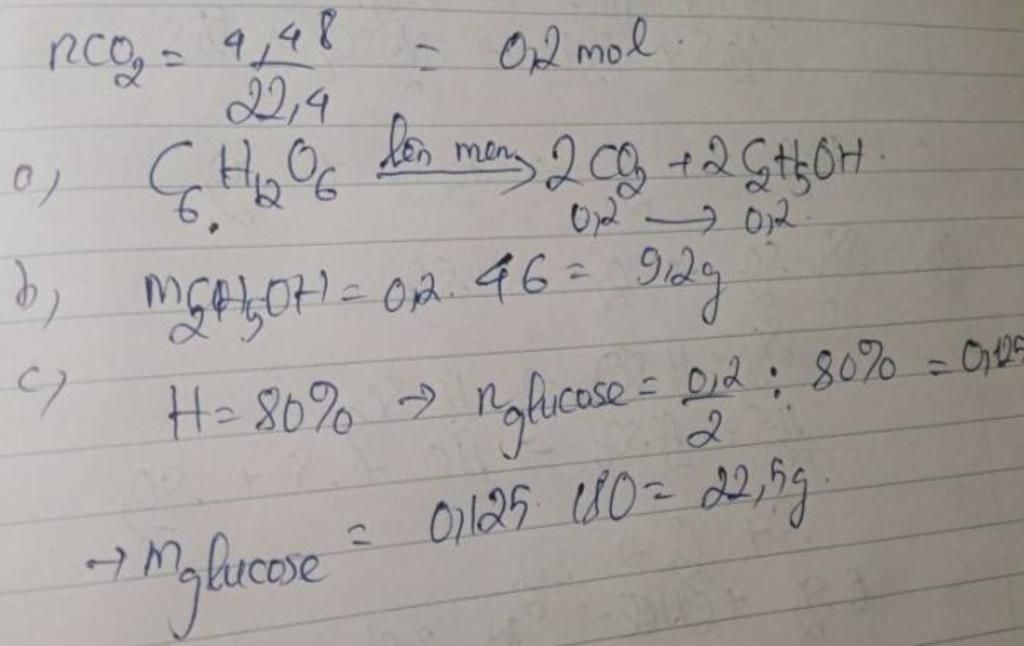 nCO₂ = 4,48/22,4 = 0,2 mol.
a) C₆H₁₂O₆ lên men→ 2CO₂ + 2C₂H₅OH.
0,2 → 0,2.
b) mC₂H₅OH = 0,2. 46 = 9,2g
c) H = 80% → nglucose = 0,2/2 : 80% = 0,125
→ mglucose = 0,125. 180 = 22,5g.